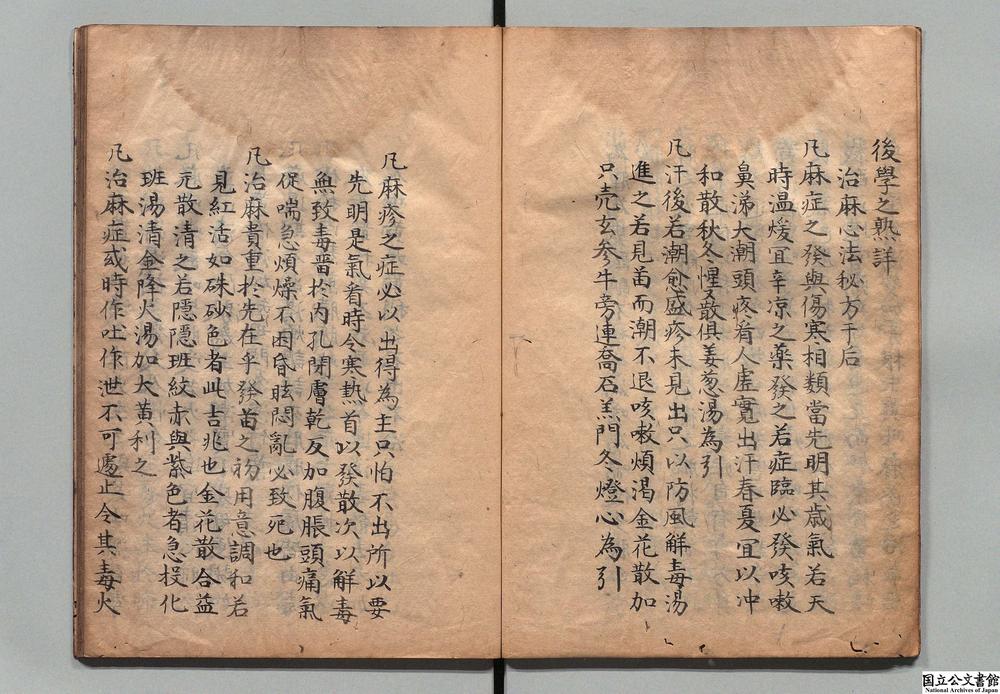 後學之熟詳
治麻心法秘方于后
凡麻症之發與傷寒相類當先明其歳氣若天
時温煖宜辛凉之薬發之若症臨必發咳嗽
鼻涕大潮頭疼看人虚實出汗春夏宜以冲
和散秋冬惺惺散俱姜葱湯為引
凡汗後若潮愈盛疹未見出只以防風解毒湯
進之若見苗而潮不退咳嗽煩渴金花散加
只壳玄参牛旁連喬石羔門冬燈心為引
凡麻疹之症必以出得為主只怕不出所以要
先明是氣看時令寒熱首以發散次以解毒
無致毒畱於内孔閉膚乾反加腹脹頭痛氣
促喘急煩燥不困昏眩悶亂必致死也
凡治麻貴重於先在乎發苗之初用意調和若
見紅活如硃砂色者此吉兆也金花散合益
元散清之若隱隱班紋赤與紫色者急投化
班湯清金降火湯加大黄利之
凡治麻症或時作吐作泄不可遽止令其毒火
国立公文書館
National Archives of Japan